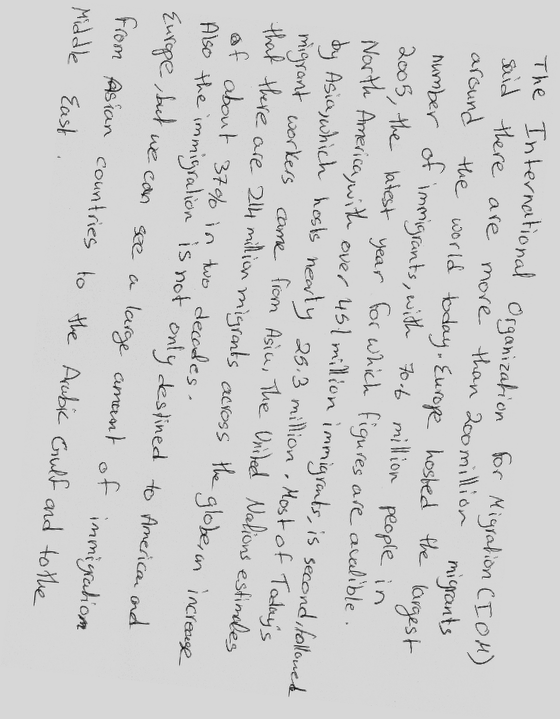 The International Organization for Migration (IOM)
said there are more than 200 million migrants
around the world today. Europe hosted the largest
number of immigrants, with 70.6 million people in
2005, the latest year for which figures are avalible.
North America, with over 45.1 million immigrants, is second, followed
by Asia, which hosts nearly 25.3 million. Most of Today's
migrant workers came from Asia, The United Nations estimates
that there are 214 million migrants across the globe, an increase
of about 37% in two decades.
Also the immigration is not only destined to America and
Europe, but we can see a large amount of immigration
from Asian countries to the Arabic Gulf and to the
Middle East.